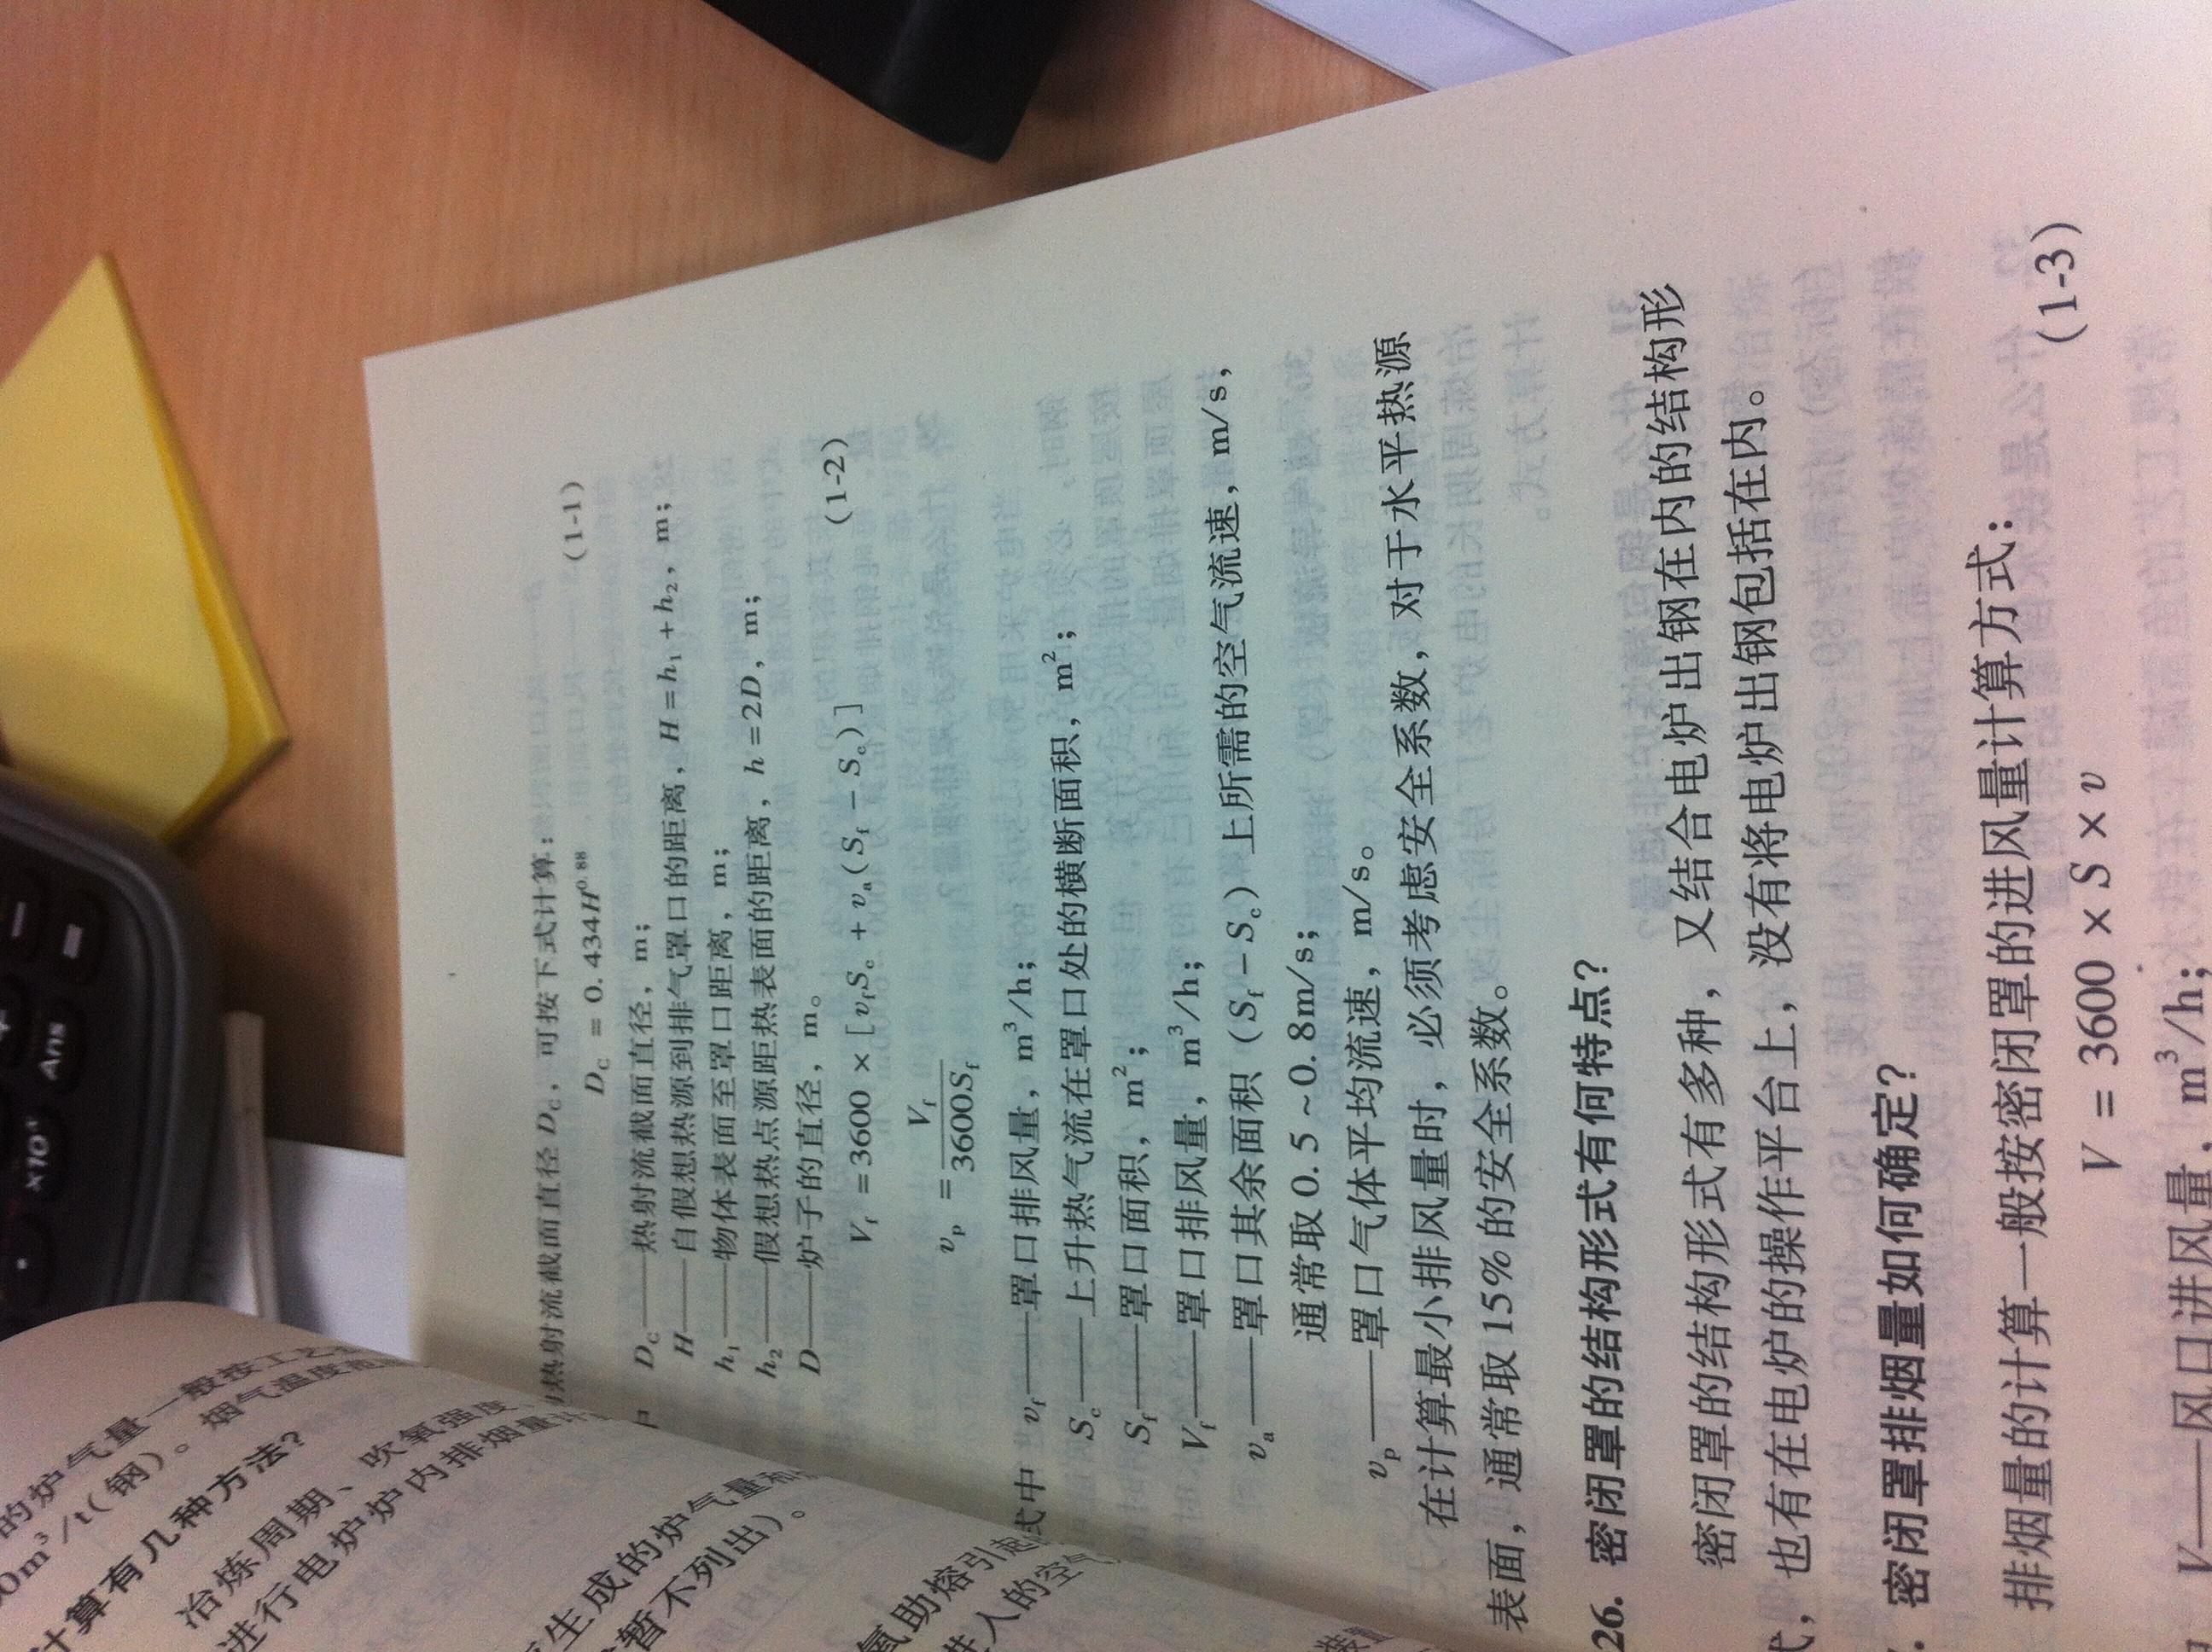 的炉气量一般按工艺
0m³/t(钢)。烟气温度范
计算有几种方法?
冶炼周期、吹氧强度、
进行电炉炉内排烟量计
生成的炉气量和
暂不列出)。
氧助熔引起
进入的空气
热射流截面直径 D_C, 可按下式计算:
D_C = 0.434H^0.88 (1-1)
中 D_C——热射流截面直径, m;
H——自假想热源到排气罩口的距离, H = h₁ + h₂, m;
h₁——物体表面至罩口距离, m;
h₂——假想热点源距热表面的距离, h = 2D, m;
D——炉子的直径, m。
V_f = 3600 × [v_f S_c + v_a(S_f − S_c)] (1-2)
v_p = V_f / 3600S_f
式中 v_f——罩口排风量, m³/h;
S_c——上升热气流在罩口处的横断面积, m²;
S_f——罩口面积, m²;
V_f——罩口排风量, m³/h;
v_a——罩口其余面积 (S_f − S_c) 上所需的空气流速, m/s,
通常取 0.5~0.8m/s;
v_p——罩口气体平均流速, m/s。
在计算最小排风量时, 必须考虑安全系数, 对于水平热源
表面, 通常取15%的安全系数。
26. 密闭罩的结构形式有何特点?
密闭罩的结构形式有多种, 又结合电炉出钢在内的结构形
式, 也有在电炉的操作平台上, 没有将电炉出钢包括在内。
. 密闭罩排烟量如何确定?
排烟量的计算一般按密闭罩的进风量计算方式:
V = 3600 × S × v (1-3)
V——风口进风量, m³/h;
Ans
×10ˣ
+
−
=